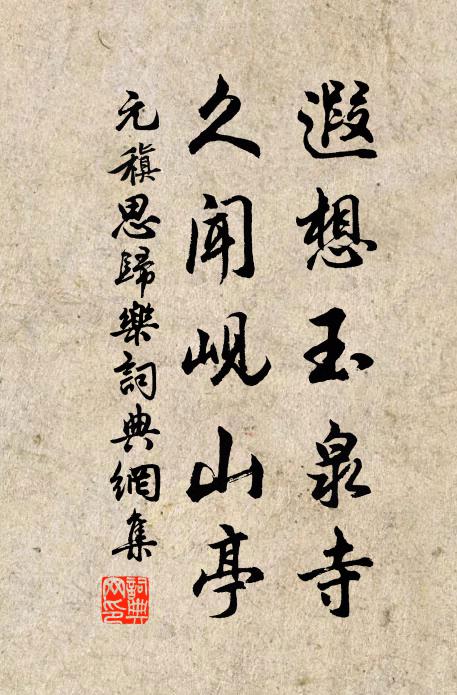 遐想玉泉寺
久聞峴山亭
元稹思歸樂詞典網集
詞典網印